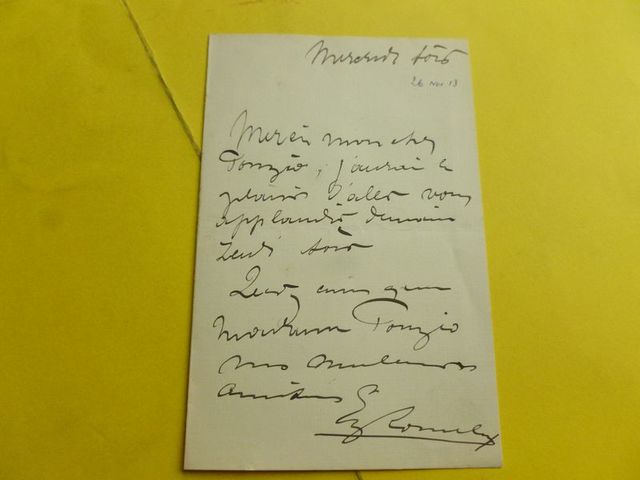 Mercredi soir
26 Nov 13
Merci mon cher
Ponzio, j'aurai le
plaisir d'aller vous
applaudir demain
Jeudi soir
ainsi que
Madame Ponzio
mes meilleures
amitiés